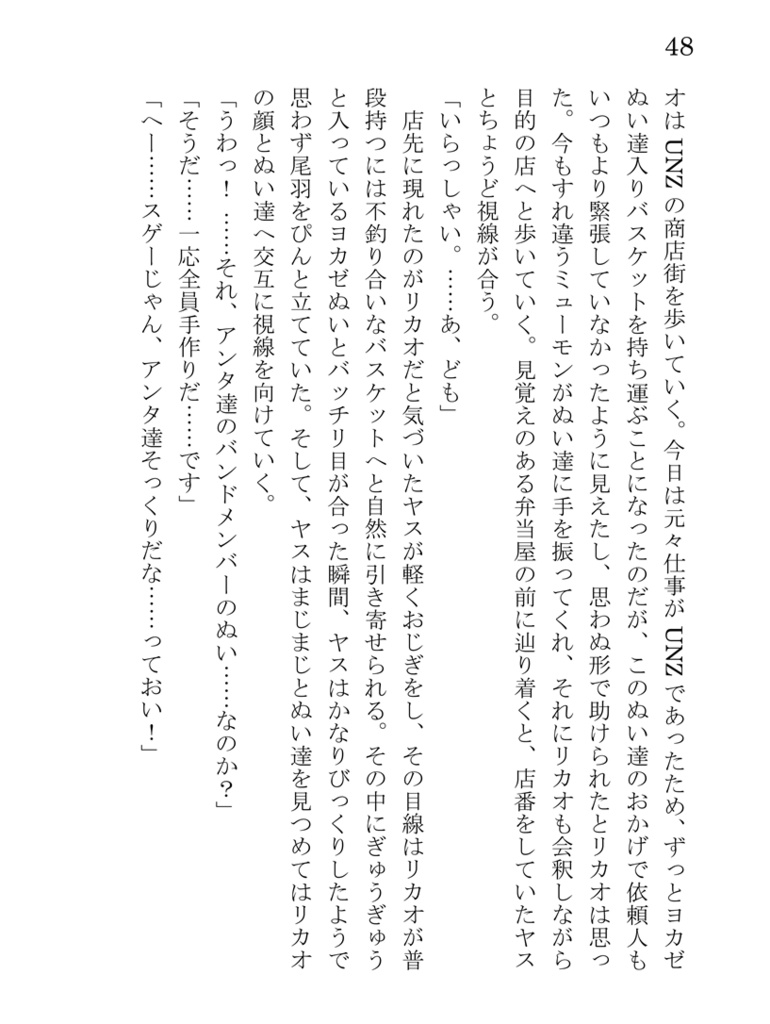 48
オは UNZ の商店街を歩いていく。今日は元々仕事が UNZ であったため、ずっとヨカゼ
ぬい達入りバスケットを持ち運ぶことになったのだが、このぬい達のおかげで依頼人も
いつもより緊張していなかったように見えたし、思わぬ形で助けられたとリカオは思っ
た。今もすれ違うミューモンがぬい達に手を振ってくれ、それにリカオも会釈しながら
目的の店へと歩いていく。見覚えのある弁当屋の前に辿り着くと、店番をしていたヤス
とちょうど視線が合う。
「いらっしゃい。……あ、ども」
店先に現れたのがリカオだと気づいたヤスが軽くおじぎをし、その目線はリカオが普
段持つには不釣り合いなバスケットへと自然に引き寄せられる。その中にぎゅうぎゅう
と入っているヨカゼぬいとバッチリ目が合った瞬間、ヤスはかなりびっくりしたようで
思わず尾羽をぴんと立てていた。そして、ヤスはまじまじとぬい達を見つめてはリカオ
の顔とぬい達へ交互に視線を向けていく。
「うわっ！ ……それ、アンタ達のバンドメンバーのぬい……なのか？」
「そうだ……一応全員手作りだ……です」
「へー……スゲーじゃん、アンタ達そっくりだな……っておい！」